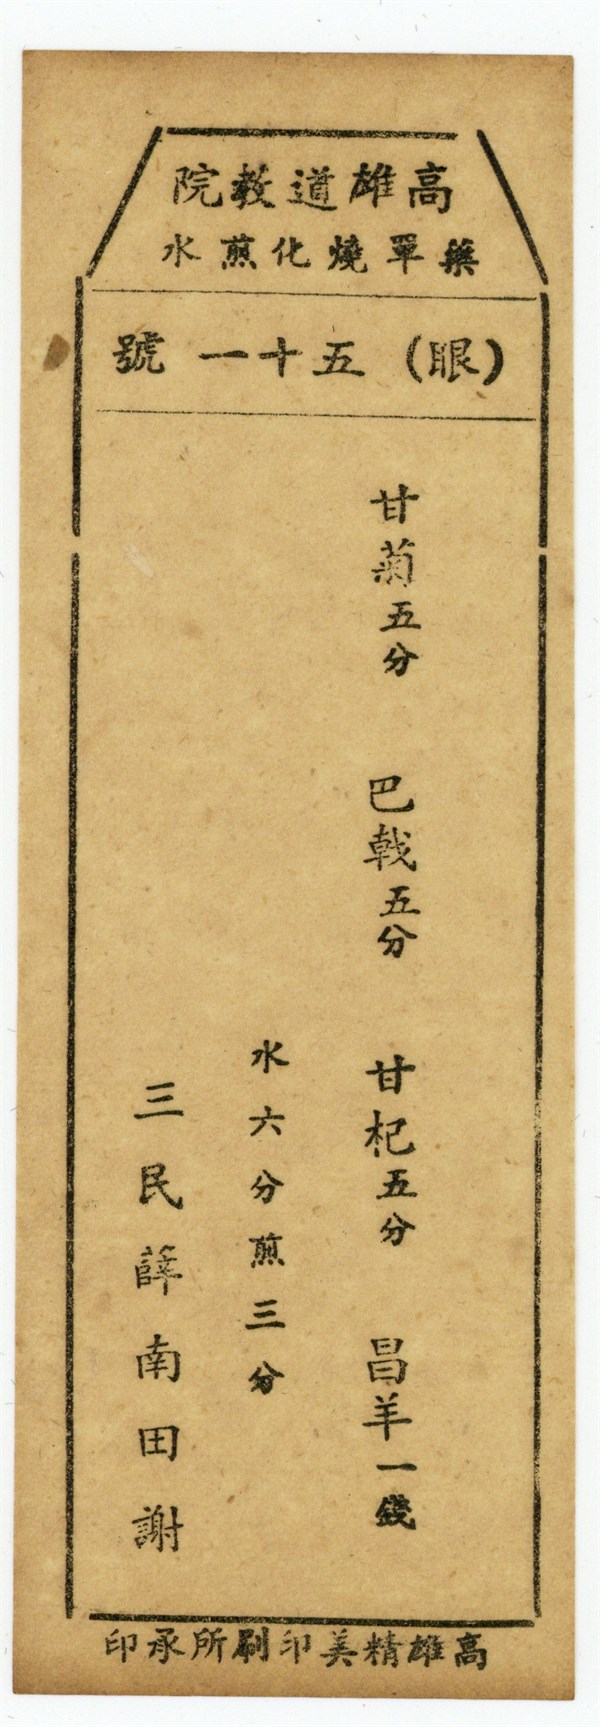 高雄道教院
藥單燒化煎水
(眼)五十一號
甘菊五分 巴戟五分 甘杞五分 昌羊一錢
水六分煎三分
三民薛南田謝
高雄精美印刷所承印